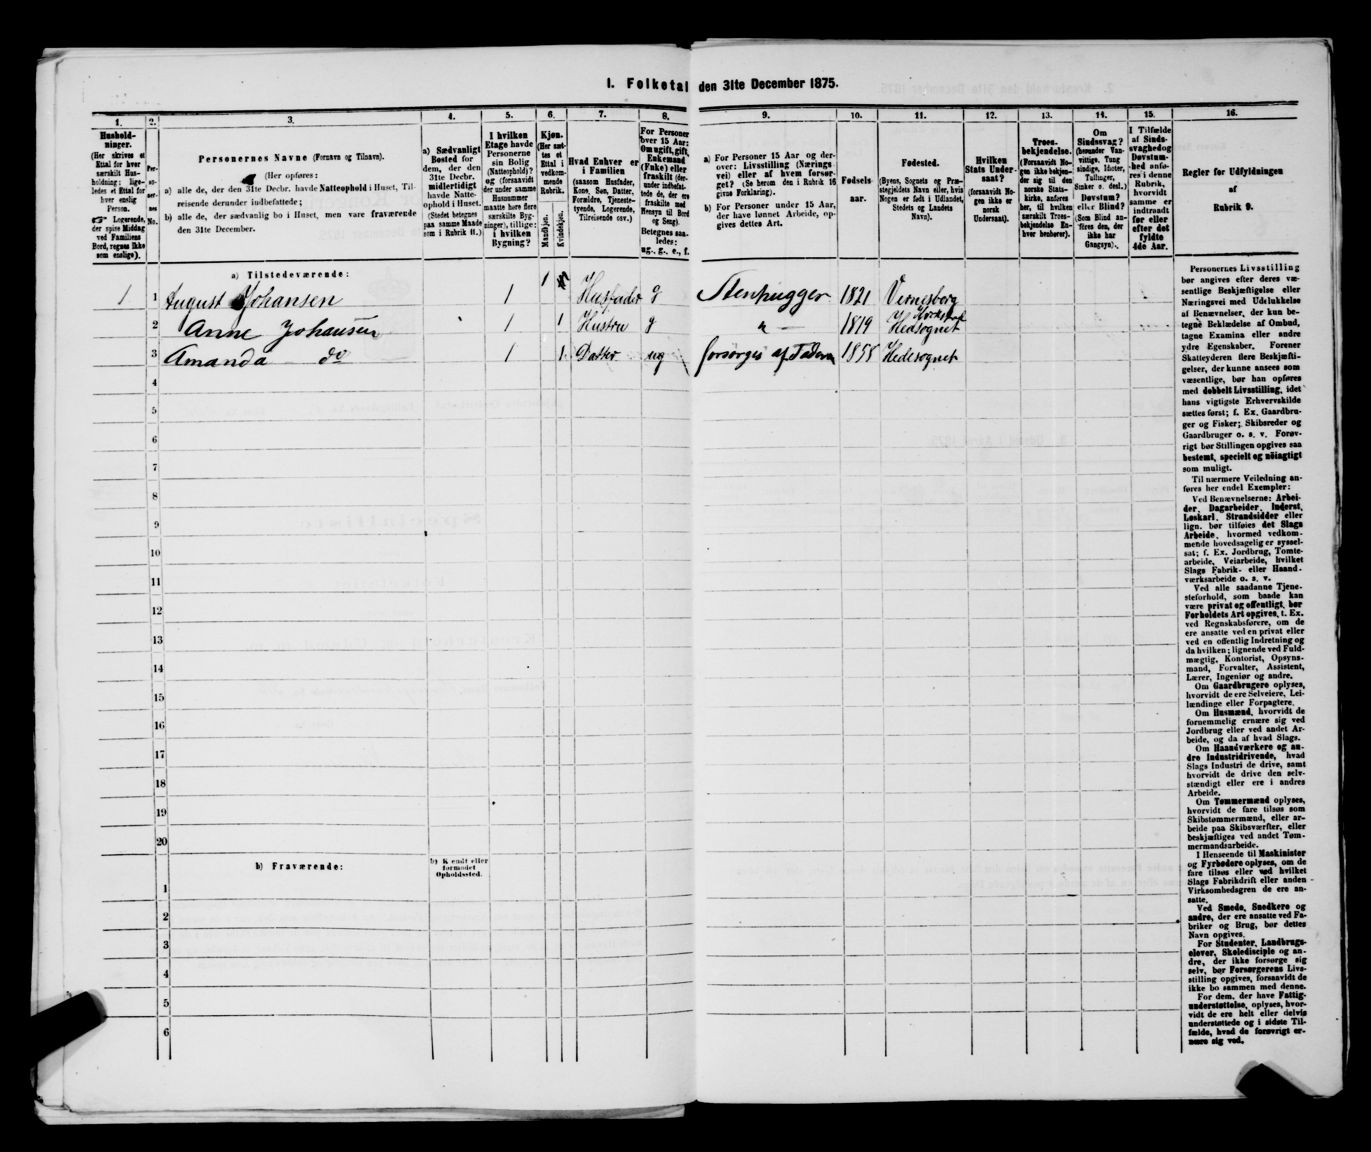 1. Folketal den 31te December 1875.
1. 2. 3. 4. 5. 6. 7. 8. 9. 10. 11. 12. 13. 14. 15. 16.
Hushold-
ninger.
(Her skrives et
Ettal for hver
særskilt Hus-
holdning; lige-
ledes et Ettal for
hver enslig
Person.
☞ Logerende,
der spise Middag
ved Familiens
Bord, regnes ikke
som enslige).
Per-
so-
ner-
nes
No.
Personernes Navne (Fornavn og Tilnavn).
(Her opføres:
a) alle de, der den 31te Decbr. havde Natteophold i Huset, Til-
reisende derunder indbefattede;
b) alle de, der sædvanlig bo i Huset, men vare fraværende
den 31te December.
a) Sædvanligt
Bosted for
dem, der den
31te Decbr.
midlertidigt
havde Natte-
ophold i Huset.
(Stedet betegnes
paa samme Maade
som i Rubrik 11.)
I hvilken
Etage havde
Personerne
sin Bolig
(Natteophold)?
og (forsaavidt
der under samme
Husnummer
maatte høre flere
særskilte Byg-
ninger), tillige:
i hvilken
Bygning?
Kjøn.
(Her sæt-
tes et
Ettal i
vedkom-
mende
Rubrik.)
Mandkjøn.
Kvindekjøn.
Hvad Enhver er
i Familien
(saasom Husfader,
Kone, Søn, Datter,
Forældre, Tjeneste-
tyende, Logerende,
Tilreisende osv.)
For Personer
over 15 Aar:
Om ugift, gift,
Enkemand
(Enke) eller
fraskilt (der-
under indbefat-
tede de, der ere
fraskilte med
Hensyn til Bord
og Seng).
Betegnes saa-
ledes:
ug., g., e., f.
a) For Personer 15 Aar og der-
over: Livsstilling (Nærings-
vei) eller af hvem forsør-
get? (Se herom den i Rubrik 16
givne Forklaring).
b) For Personer under 15 Aar,
der have lønnet Arbeide, op-
gives dettes Art.
Fødsels-
aar.
Fødested.
(Byens, Sognets og Præ-
stegjeldets Navn eller, hvis
Nogen er født i Udlandet,
Stedets og Landets
Navn).
Hvilken
Stats Under-
saat?
(forsaavidt No-
gen ikke er
norsk
Undersaat).
Troes-
bekjendelse.
(Forsaavidt No-
gen ikke bekjen-
der sig til den
norske Stats-
kirke, anføres
her, til hvilken
særskilt Tros-
bekjendelse En-
hver henhører).
Om
Sindssvag?
(herunder Van-
vittige, Tung-
sindige, Idioter,
Tullinger,
Sinker o. desl.)
Døvstum?
eller Blind?
(Som Blind an-
føres den, der
ikke har
Gangsyn).
I Tilfælde
af Sinds-
svaghed og
Døvstum-
hed anfø-
res i denne
Rubrik,
hvorvidt
samme er
indtraadt
før eller
efter det
fyldte
4de Aar.
Regler for Udfyldningen
af
Rubrik 9.
a) Tilstedeværende:
1 1 August Johansen 1 1 Husfader g Stenhugger 1821 Vernesborg
2 Anne Johansen 1 1 Hustru g " — 1819 Hedsognet
3 Amanda do 1 1 Datter ug forsørges af Faderen 1855 Hedesognet
4
5
6
7
8
9
10
11
12
13
14
15
16
17
18
19
20
b) Fraværende: b) Kjendt eller
formodet
Opholdssted.
1
2
3
4
5
6
Personernes Livsstilling
bør angives efter deres væ-
sentlige Beskjæftigelse eller
Næringsvei med Udelukkelse
af Benævnelser, der kun be-
tegne Beklædelse af Ombud,
tagne Examina eller andre
ydre Egenskaber. Forener
Skatteyderen flere Beskjæfti-
gelser, der kunne ansees som
væsentlige, bør han opføres
med dobbelt Livsstilling, idet
hans vigtigste Erhvervskilde
sættes først; f. Ex. Gaardbru-
ger og Fisker; Skibsreder og
Gaardbruger o. s. v. Forøv-
rigt bør Stillingen opgives saa
bestemt, specielt og nøiagtigt
som muligt.
Til nærmere Veiledning an-
føres her endel Exempler:
Ved Benævnelserne: Arbei-
der, Dagarbeider, Inderst,
Løskarl, Strandsidder eller
lign. bør tilføies det Slags
Arbeide, hvormed vedkom-
mende hovedsagelig er syssel-
sat; f. Ex. Jordbrug, Tomte-
arbeide, Veiarbeide, hvilket
Slags Fabrik- eller Haand-
værksarbeide o. s. v.
Ved alle saadanne Tjene-
steforhold, som baade kan
være privat og offentligt, bør
Forholdets Art opgives, t. Ex.
ved Regnskabsførere, om de
ere ansatte ved en privat eller
ved en offentlig Indretning og
da hvilken; lignende ved Fuld-
mægtig, Kontorist, Opsyns-
mand, Forvalter, Assistent,
Lærer, Ingeniør og andre.
Om Gaardbrugere oplyses,
hvorvidt de ere Selveiere, Lei-
lændinge eller Forpagtere.
Om Husmænd, hvorvidt de
fornemmelig ernære sig ved
Jordbrug eller ved andet Ar-
beide, og da af hvad Slags.
Om Haandværkere og an-
dre Industridrivende, hvad
Slags Industri de drive, samt
hvorvidt de drive den selv-
stændigt eller ere i andres
Arbeide.
Om Tømmermænd oplyses,
hvorvidt de fare tilsøs som
Skibstømmermænd, eller ar-
beide paa Skibsværfter, eller
beskjæftiges ved andet Tøm-
mermandsarbeide.
I Henseende til Maskinister
og Fyrbødere oplyses, om de
fare tilsøs eller ved hvilket
Slags Fabrikdrift eller anden
Virksomhedsgren de ere an-
satte.
Ved Smede, Snedkere og
andre, der ere ansatte ved Fa-
briker og Brug, bør dettes
Navn opgives.
For Studenter, Landbrugs-
elever, Skoledisciple og an-
dre, der ikke forsørge sig
selv, bør Forsørgerens Livs-
stilling opgives, forsaavidt de
ikke bo sammen med denne.
For dem, der have Fattig-
understøttelse, oplyses, hvor-
vidt de ere helt eller delvis
understøttede og i sidste Til-
fælde, hvad de forøvrigt er-
nære sig ved.